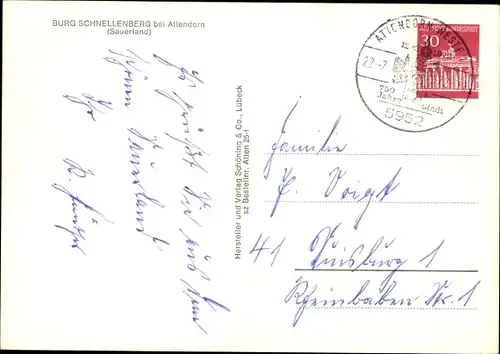 BURG SCHNELLENBERG bei Attendorn
(Sauerland)
Es grüßt Sie aus dem
schönen Sauerland
Ihr
B.
Hersteller und Verlag Schöning & Co., Lübeck
sz Bestellnr. Atten 25-1
ATTENDORN
22.-7.
750
Jahre Stadt
5952
DEUTSCHE BUNDESPOST
30
Familie
F. Voigt
41 Duisburg 1
Rheinbaben Str. 1